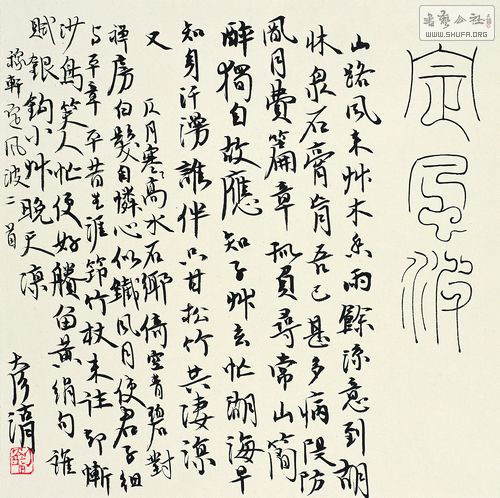 定風波
山路風来艸木香雨餘涼意到胡
牀泉石膏肓吾已甚多病隄防
風月費篇章孤負尋常山簡
醉獨自故應知子艸玄忙湖海早
知身汗漫誰伴只甘松竹共淒涼
又 仄月寒高水石鄉倚空青碧對
禪房白髮自憐心似鐵風月使君子細
与平章平昔生涯筇竹杖来往却慚
沙鳥笑人忙便好賸留黄絹句誰
賦銀鉤小艸晚天涼
稼軒定風波二首
WWW.SHUFA.ORG